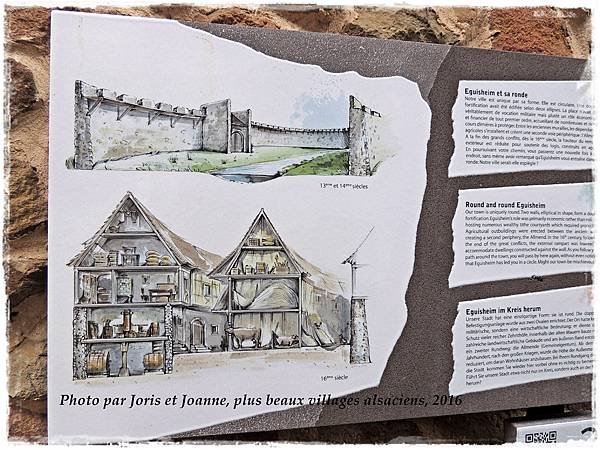 Eguisheim et sa ronde
Notre ville est unique par sa forme. Elle est circulaire. Une
fortification avait été édifiée selon deux ellipses. La place
véritablement de vocation militaire mais plutôt un rôle
et financier de tout premier ordre, accueillant de nombreuses
cours dîmières à protéger. Entre les anciennes murailles, les
agricoles s'installent et créent une seconde voie périphérique :
A la fin des grands conflits, dès le 16ème siècle, la hauteur du
extérieur est réduite pour soutenir des logis, construits en
En poursuivant votre chemin, vous passerez une nouvelle fois
endroit, sans même avoir remarqué qu'Eguisheim vous entraîne dans
ronde. Notre ville serait elle espiègle ?
13ème et 14ème siècles
Round and round Eguisheim
Our town is uniquely round. Two walls, elliptical in shape, form a
fortification. Eguisheim's role was primarily economic rather than
hosting numerous wealthy tithe courtyards which required
Agricultural outbuildings were erected between the ancient
creating a second periphery, the Allmend. In the 16th century,
the end of the great conflicts, the external rampart was lowered
accommodate dwellings constructed against the wall. As you follow
path around the town, you will pass by here again, without even
that Eguisheim has led you in a circle. Might our town be
Eguisheim im Kreis herum
Unsere Stadt hat eine einzigartige Form: sie ist rund. Die
Befestigungsanlage wurde aus zwei Ovalen errichtet. Der Ort hatte
militärische, sondern eine wirtschaftliche Bedeutung: er diente
Schutz vieler reicher Zehnthöfe. Innerhalb der alten Mauern
zahlreiche landwirtschaftliche Gebäude und am äußeren Rand
ein zweiter Rundweg: die Allmende (Gemeineigentum). Ab dem
Jahrhundert, nach den großen Kriegen, wurde die Höhe der Außenmauer
reduziert, um daran Wohnhäuser anzubauen. Bei Ihrem Rundgang
die Stadt kommen Sie wieder hier vorbei ohne es richtig zu
Führt Sie unsere Stadt etwa nicht nur im Kreis, sondern auch an der
herum?
16ème siècle
Photo par Joris et Joanne, plus beaux villages alsaciens, 2016